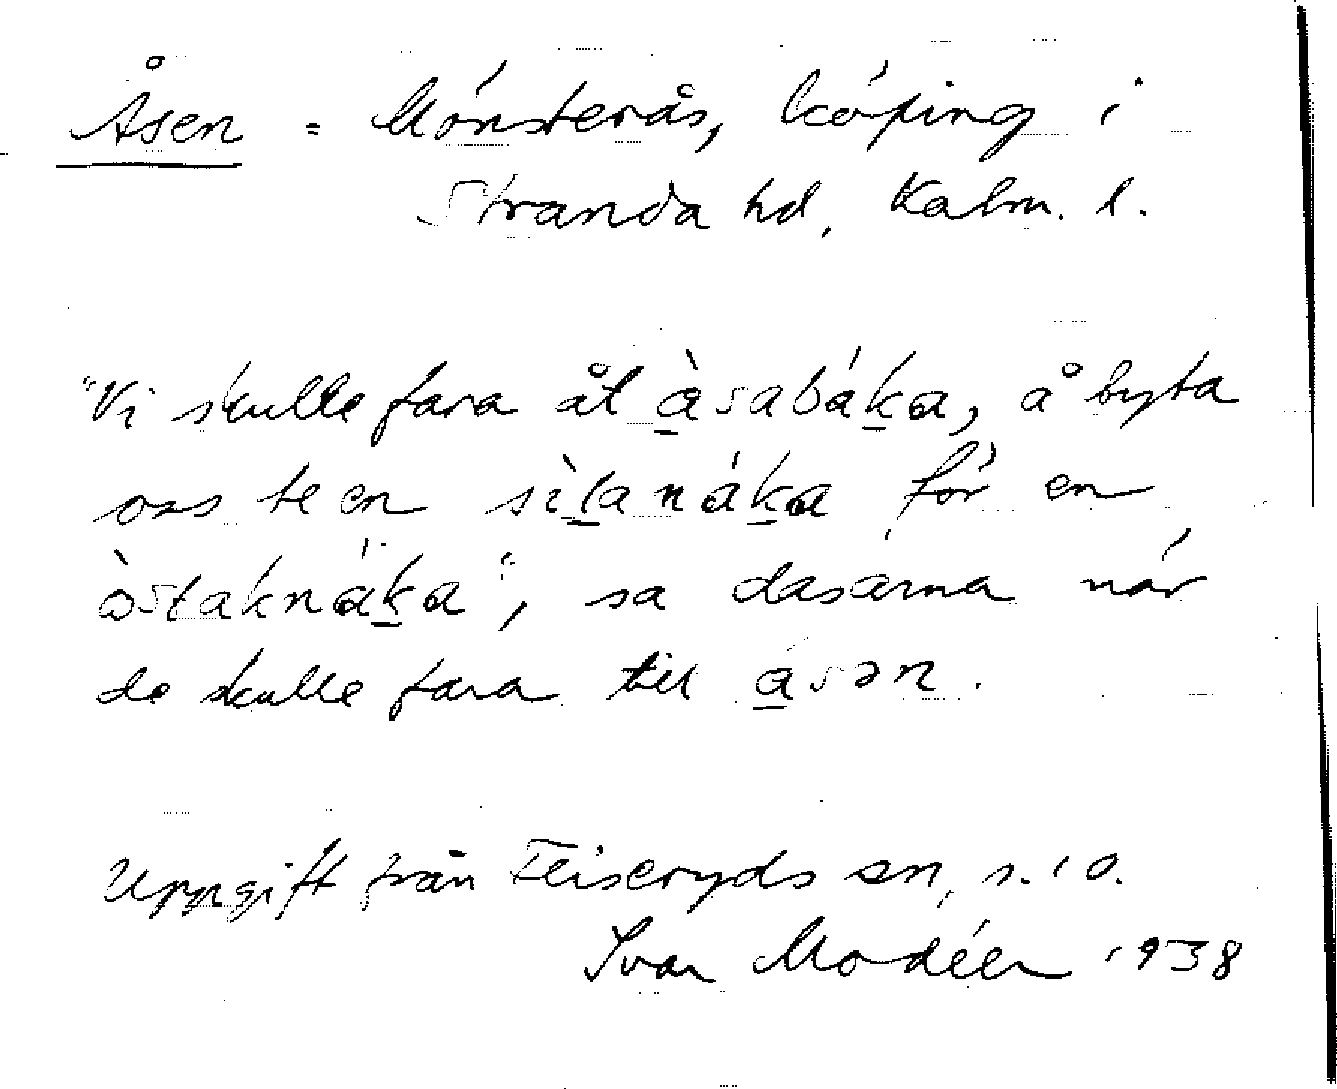 Åsen = Mönsterås, köping i
Stranda hd, Kalm. l.
"Vi skulle fara åt àsabáka, å byta
oss te en sìlanáka för en
òstaknáka", sa dasarna när
de skulle fara till ásən.
Uppgift från Fliseryds sn, s. 10.
Ivar Modéer 1938